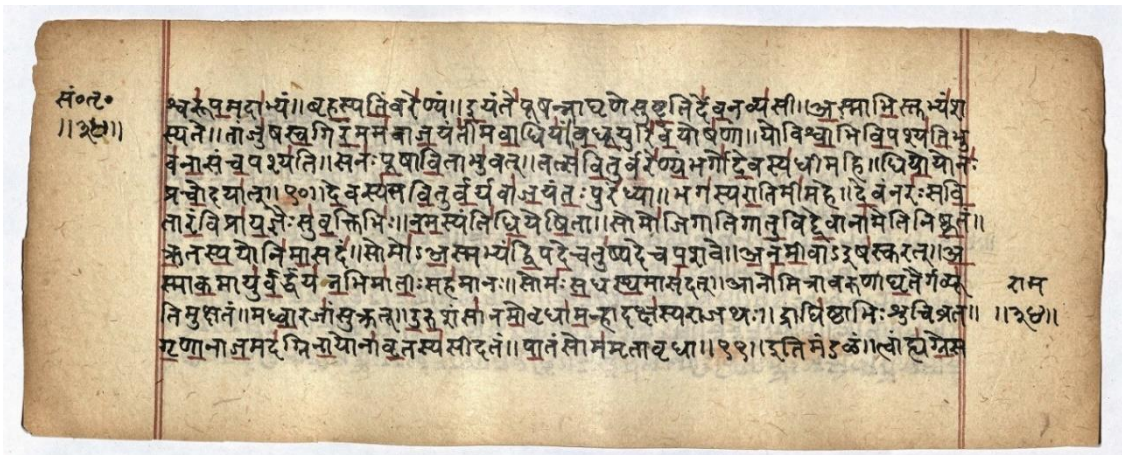 सं॰तृ॰
॥३४॥
श्वरूपमदाभ्यं॥बृहस्पतिंवरेण्यं॥इयंतेपूषन्नाघृणेसुष्टुतिर्देवनव्यसी॥अस्माभिस्तुभ्यंश
स्यते॥तांजुषस्वगिरंममवाजयंतीमवाधियं॥वधूयुरिवयोषणां॥योविश्वाभिविपश्यतिभु
वनासंचपश्यति॥सनःपूषाविताभुवत्॥तत्सवितुर्वरेण्यंभर्गोदेवस्यधीमहि॥धियोयोनः
प्रचोदयात्॥१०॥देवस्यसवितुर्वयंवाजयंतःपुरंध्या॥भगस्यरातिमीमहे॥देवंनरःसवि
तारंविप्रायज्ञैःसुवृक्तिभिः॥नमस्यंतिधियेषिताः॥सोमोजिगातिगातुविद्देवानामेतिनिष्कृतं॥
ऋतस्ययोनिमासदं॥सोमोऽअस्मभ्यंद्विपदेचतुष्पदेचपशवे॥अनमीवाऽइषस्करत्॥अ
स्माकमायुर्वर्द्धयन्नभिमातीःसहमानः॥सोमःसधस्थमासदत्॥आनोमित्रावरुणाघृतैर्गव्यू
तिमुक्षतं॥मध्वारजांसिसुक्रतू॥उरुशंसानमोवृधामह्नादक्षस्यराजथः॥द्राघिष्ठाभिःशुचिव्रता॥
गृणानाजमदग्निनायोनावृतस्यसीदतं॥पातंसोममृतावृधा॥११॥इतिमंडळं॥त्वांह्यग्नेस
राम
॥३४॥